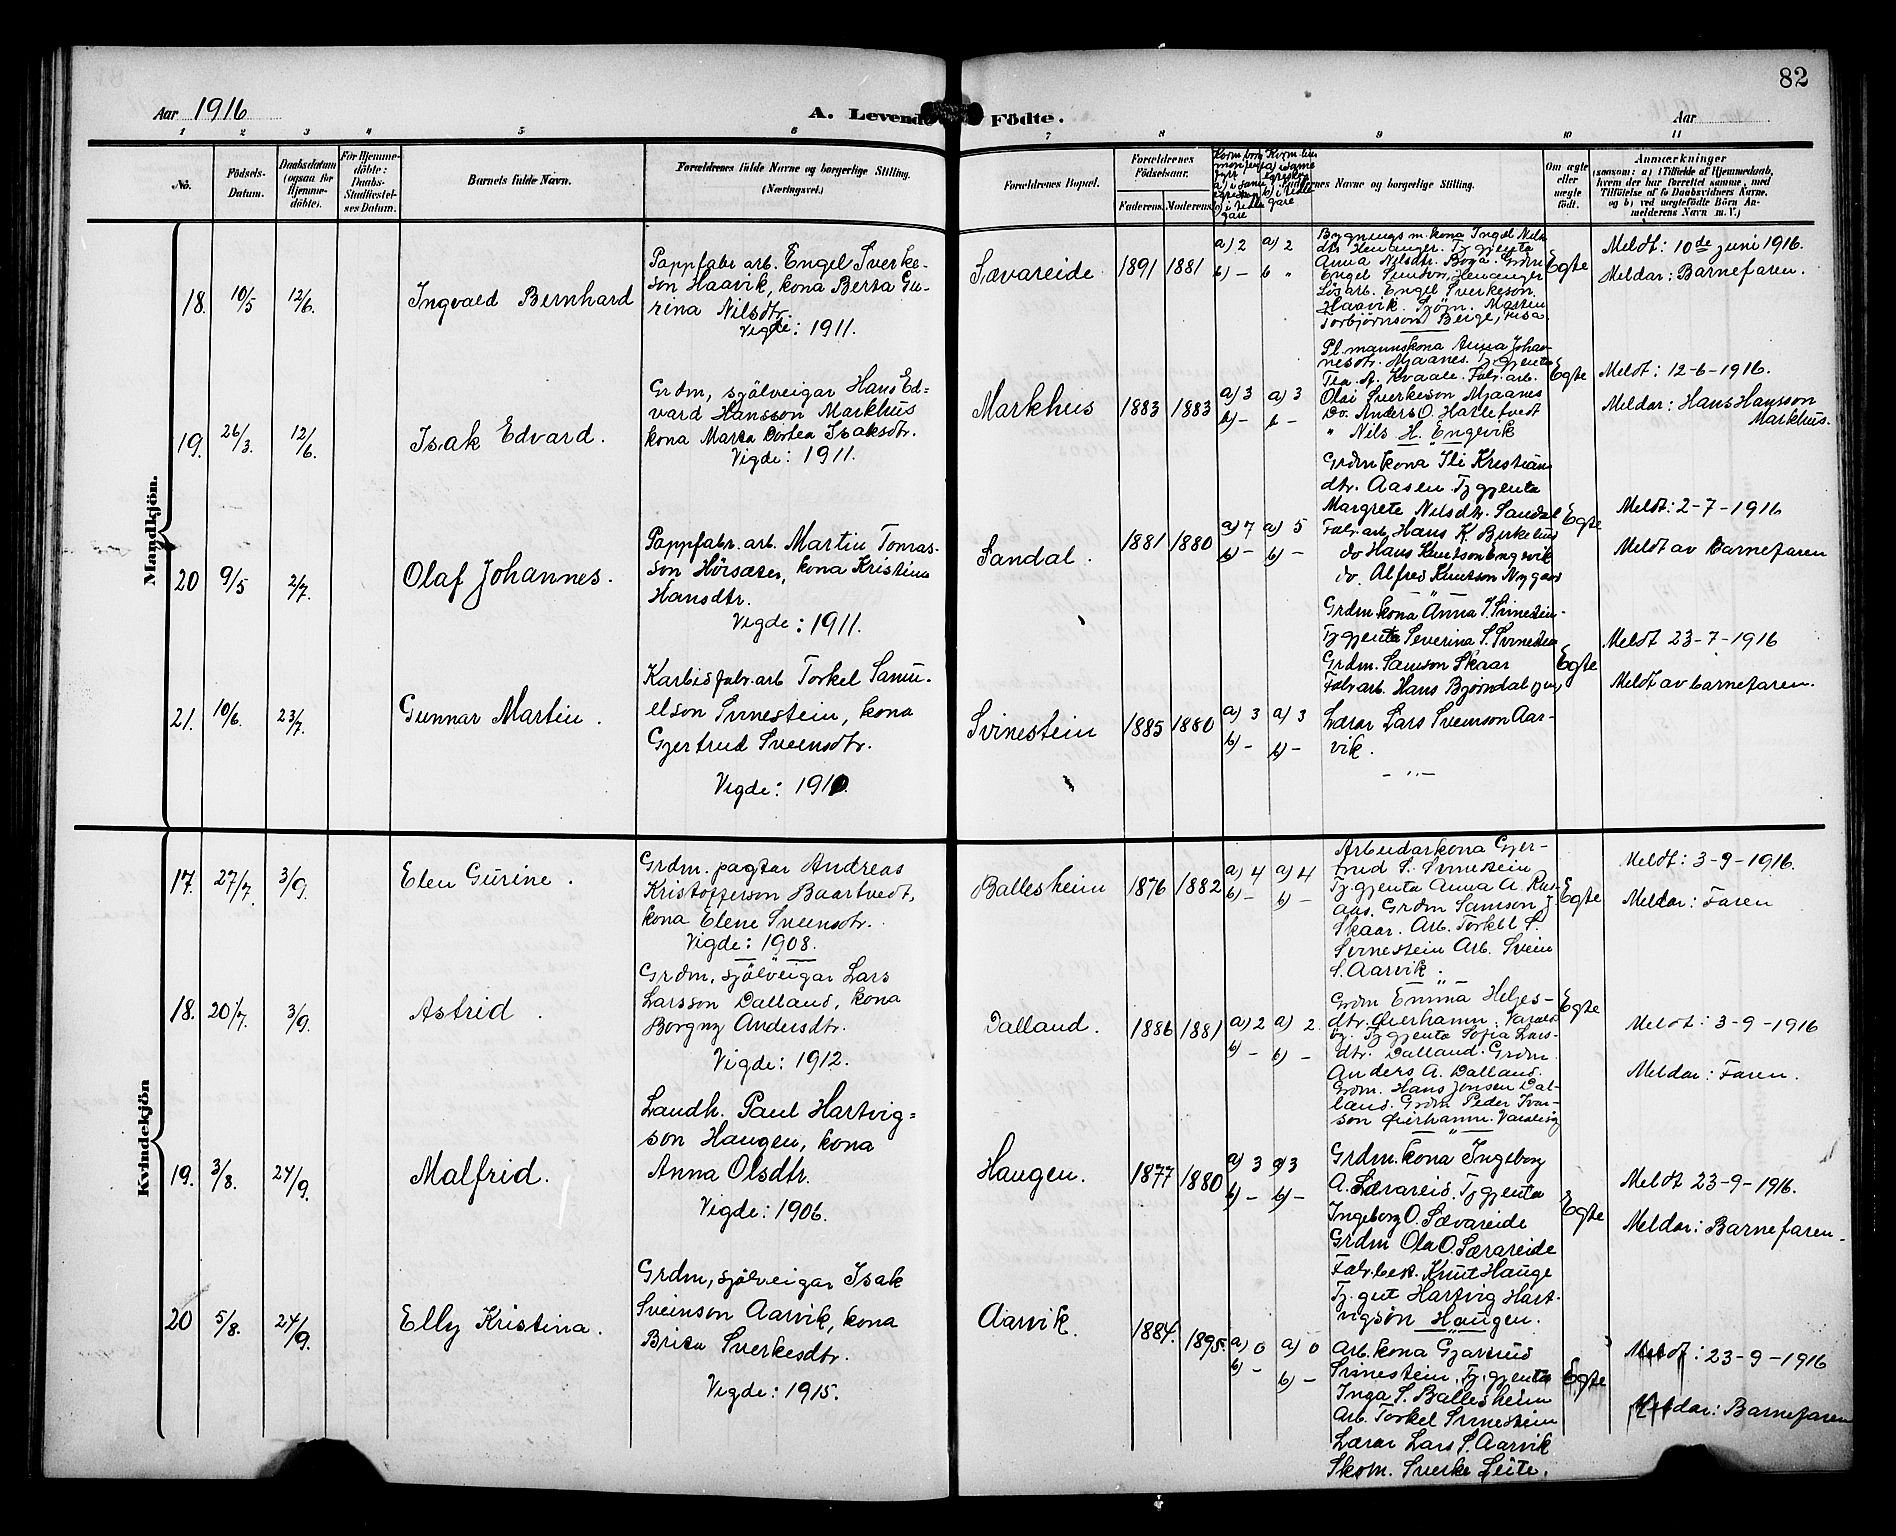 82
Aar 1916
A. Levende Födte.
Aar
1 2 3 4 5 6 7 8 9 10 11
No.
Födsels-
Datum.
Daabsdatum
(ogsaa for
Hjemme-
döbte).
För Hjemme-
döbte:
Daabs-
Stadfæstel-
ses Datum.
Barnets fulde Navn.
Forældrenes fulde Navne og borgerlige Stilling.
(Næringsvei.)
Forældrenes Bopæl.
Forældrenes
Födselsaar.
Faderens. Moderens.
Navne og borgerlige Stilling.
Om ægte
eller
uægte
födt.
Anmærkninger
(saasom: a) i Tilfælde af Hjemmedaab,
hvem der har forrettet samme, med
Tilföielse af to Daabsvidners Navne,
og b) ved uægtefödte Börn An-
melderens Navn m. V.)
Mandkjön.
18. 10/5 12/6. Ingvald Bernhard
Pappfabr arb. Engel Sverke-
son Haavik, kona Berta Gu-
rina Nilsdtr.
Vigde: 1911.
Sævareide 1891 1881
a) 2 a) 2
b) – b "
Bygnings m. kona Ingel Nils
dtr Henanger. Tj gjenta
Anna Nilsdtr.
Løsarb. Engel Sverkeson
Haavik. Martin
Torbjørnson
Egte
Meldt: 10de juni 1916.
Meldar: Barnefaren.
19. 26/3. 12/6. Isak Edvard.
Grdm, sjölveigar Hans Ed-
vard Hansson Markhus
kona Marta Dortea Isaksdtr.
Vigde: 1911.
Markhus 1883 1883
a) 3 a) 3
b) – b –
Pl. mannskona Anna Johan-
nesdtr. Mjaanes. Tj. gjenta
Tea A. Kvaale. Fabr. arb.
Olai Sverkeson Mjaanes
Do. Anders O. Hatlefvedt
" Nils H. Engevik
Egte
Meldt: 12-6-1916.
Meldar: Hans Hansson
Markhus.
20 9/5 2/7. Olaf Johannes.
Pappfabr. arb. Martin Tomas-
son Hörsæter, kona Kristina
Hansdtr.
Vigde: 1911.
Sandal. 1881 1880
a) 7 a) 5
b) – b) –
Grdm kona Ili Kristians
dtr. Aasen. Tj gjenta
Margrete Nilsdtr. Sandal
Fabr. arb. Hans K. Birkeland
do Hans Knutson Engevik
do. Alfred Knutson Nygard
Egte
Meldt: 2-7-1916
Meldt av Barnefaren
21. 10/6. 23/7. Gunnar Martin.
Karbidfabr. arb Torkel Samu-
elson Svinestein, kona
Gjertrud Sveinsdtr.
Vigde: 1910.
Svinestein 1885 1880
a) 3 a) 3
b) – b) –
Grdm. kona Anna S. Svinestein
Tj gjenta Severina S. Svinestein
Grdm. Samson Skaar
Fabr arb. Hans Bjørndal
Lærar Lars Sveinson Aar-
vik.
Egte
Meldt 23-7-1916
Meldt av barnefaren.
Kvindekjön
17. 27/7. 3/9. Elen Gurine.
Grdm. pagtar Andreas
Kristofferson Baartvedt,
kona Elene Sveinsdtr.
Vigde: 1908.
Ballesheim 1876 1882
a) 4 a) 4
b) – b) –
Arbeidarkona Gjer-
trud S. Svinestein
Tj. gjenta Anna A. Rus-
aas. Grdm Samson J
Skaar. Arb. Torkel S.
Svinestein Arb. Svein
S. Aarvik.
Egte
Meldt: 3-9-1916.
Meldar: Faren
18. 20/7. 3/9. Astrid.
Grdm, sjölveigar Lars
Larsson Dalland, kona
Borgny Andersdtr.
Vigde: 1912.
Dalland. 1886 1881
a) 2 a) 2.
b) – b) –
Grdm Emma Helges-
dtr. Øierhamn.
Tj gjenta Sofia Lars-
dtr. Dalland. Grdm
Anders A. Dalland.
Grdm. Hans Jonsen Dal-
land. Grdm Peder Ivar-
son Øierhamn.
Egte
Meldt: 3-9-1916
Meldar: Faren.
19. 3/8. 24/9. Malfrid.
Landh. Paul Hartvig-
son Haugen, kona
Anna Olsdtr.
Vigde: 1906.
Haugen. 1877 1880
a) 3 a) 3
b) – b) –
Grdm. kona Ingeborg
A. Særareid. Tj gjenta
Ingeborg O. Sævareide
Grdm Ola O. Særareide
Knut Hauge
Tj. gut Hartvig Hart-
vigsön Haugen.
Egte
Meldt 23-9-1916.
Meldar: Barnefaren.
20 5/8. 24/9. Elly Kristina.
Grdm, sjölveigar Isak
Sveinson Aarvik, kona
Brita Sverkesdtr.
Vigde: 1915.
Aarvik. 1884. 1895.
a) 0 a) 0
b) – b) –
Arb. kona Gjartrud
Svinestein. Tj. gjenta
Inga S. Ballesheim
Arb. Torkel Svinestein
Lærar Lars S. Aarvik
Skom. Sverke Leite.
Egte
Meldt: 23-9-1916
Meldar: Barnefaren